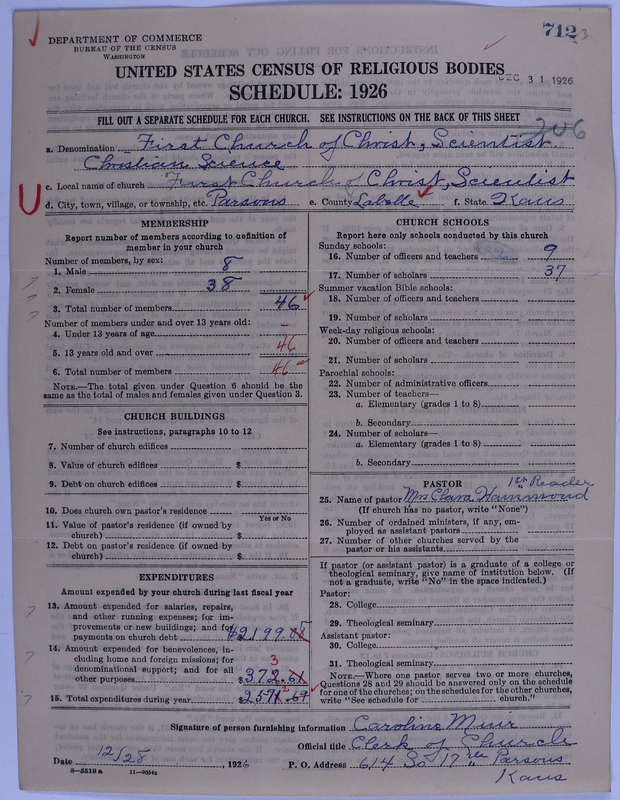 DEPARTMENT OF COMMERCE
BUREAU OF THE CENSUS
WASHINGTON
7123
UNITED STATES CENSUS OF RELIGIOUS BODIES
DEC 31 1926
SCHEDULE: 1926
FILL OUT A SEPARATE SCHEDULE FOR EACH CHURCH. SEE INSTRUCTIONS ON THE BACK OF THIS SHEET
206
a. Denomination First Church of Christ, Scientist.
Christian Science
c. Local name of church First Church of Christ, Scientist
d. City, town, village, or township, etc. Parsons e. County Labette f. State Kans
MEMBERSHIP
Report number of members according to definition of
member in your church
Number of members, by sex:
1. Male 8
2. Female 38
3. Total number of members 46
Number of members under and over 13 years old:
4. Under 13 years of age –
5. 13 years old and over 46
6. Total number of members 46
NOTE.—The total given under Question 6 should be
the same as the total of males and females given under Question 3.
CHURCH BUILDINGS
See instructions, paragraphs 10 to 12
7. Number of church edifices
8. Value of church edifices $
9. Debt on church edifices $
10. Does church own pastor's residence
Yes or No
11. Value of pastor's residence (if owned by
church) $
12. Debt on pastor's residence (if owned by
church) $
EXPENDITURES
Amount expended by your church during last fiscal year
13. Amount expended for salaries, repairs,
and other running expenses; for im-
provements or new buildings; and for
payments on church debt $2199.08
14. Amount expended for benevolences, in-
cluding home and foreign missions; for
denominational support; and for all
other purposes $372.61
3
15. Total expenditures during year $2571.69
2
CHURCH SCHOOLS
Report here only schools conducted by this church
Sunday schools:
16. Number of officers and teachers 9
17. Number of scholars 37
Summer vacation Bible schools:
18. Number of officers and teachers
19. Number of scholars
Week-day religious schools:
20. Number of officers and teachers
21. Number of scholars
Parochial schools:
22. Number of administrative officers
23. Number of teachers—
a. Elementary (grades 1 to 8)
b. Secondary
24. Number of scholars—
a. Elementary (grades 1 to 8)
b. Secondary
PASTOR
1st Reader
25. Name of pastor Mrs Clara Hammond
(If church has no pastor, write "None")
26. Number of ordained ministers, if any, em-
ployed as assistant pastors
27. Number of other churches served by the
pastor or his assistants
If pastor (or assistant pastor) is a graduate of a college or
theological seminary, give name of institution below. (If
not a graduate, write "No" in the space indicated.)
Pastor:
28. College
29. Theological seminary
Assistant pastor:
30. College
31. Theological seminary
NOTE.—Where one pastor serves two or more churches,
Questions 28 and 29 should be answered only on the schedule
for one of the churches; on the schedules for the other churches,
write "See schedule for church."
Signature of person furnishing information Caroline Muir
Official title Clerk of Church
Date 12/28, 1926 P. O. Address 614 So 17th Parsons
Kans
8—5518 a 11—9054c